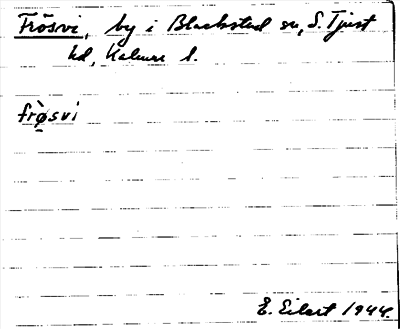 Frösvi, by i Blackstad sn, S. Tjust
hd, Kalmar l.
frø̀svi
E. Eilert 1944.